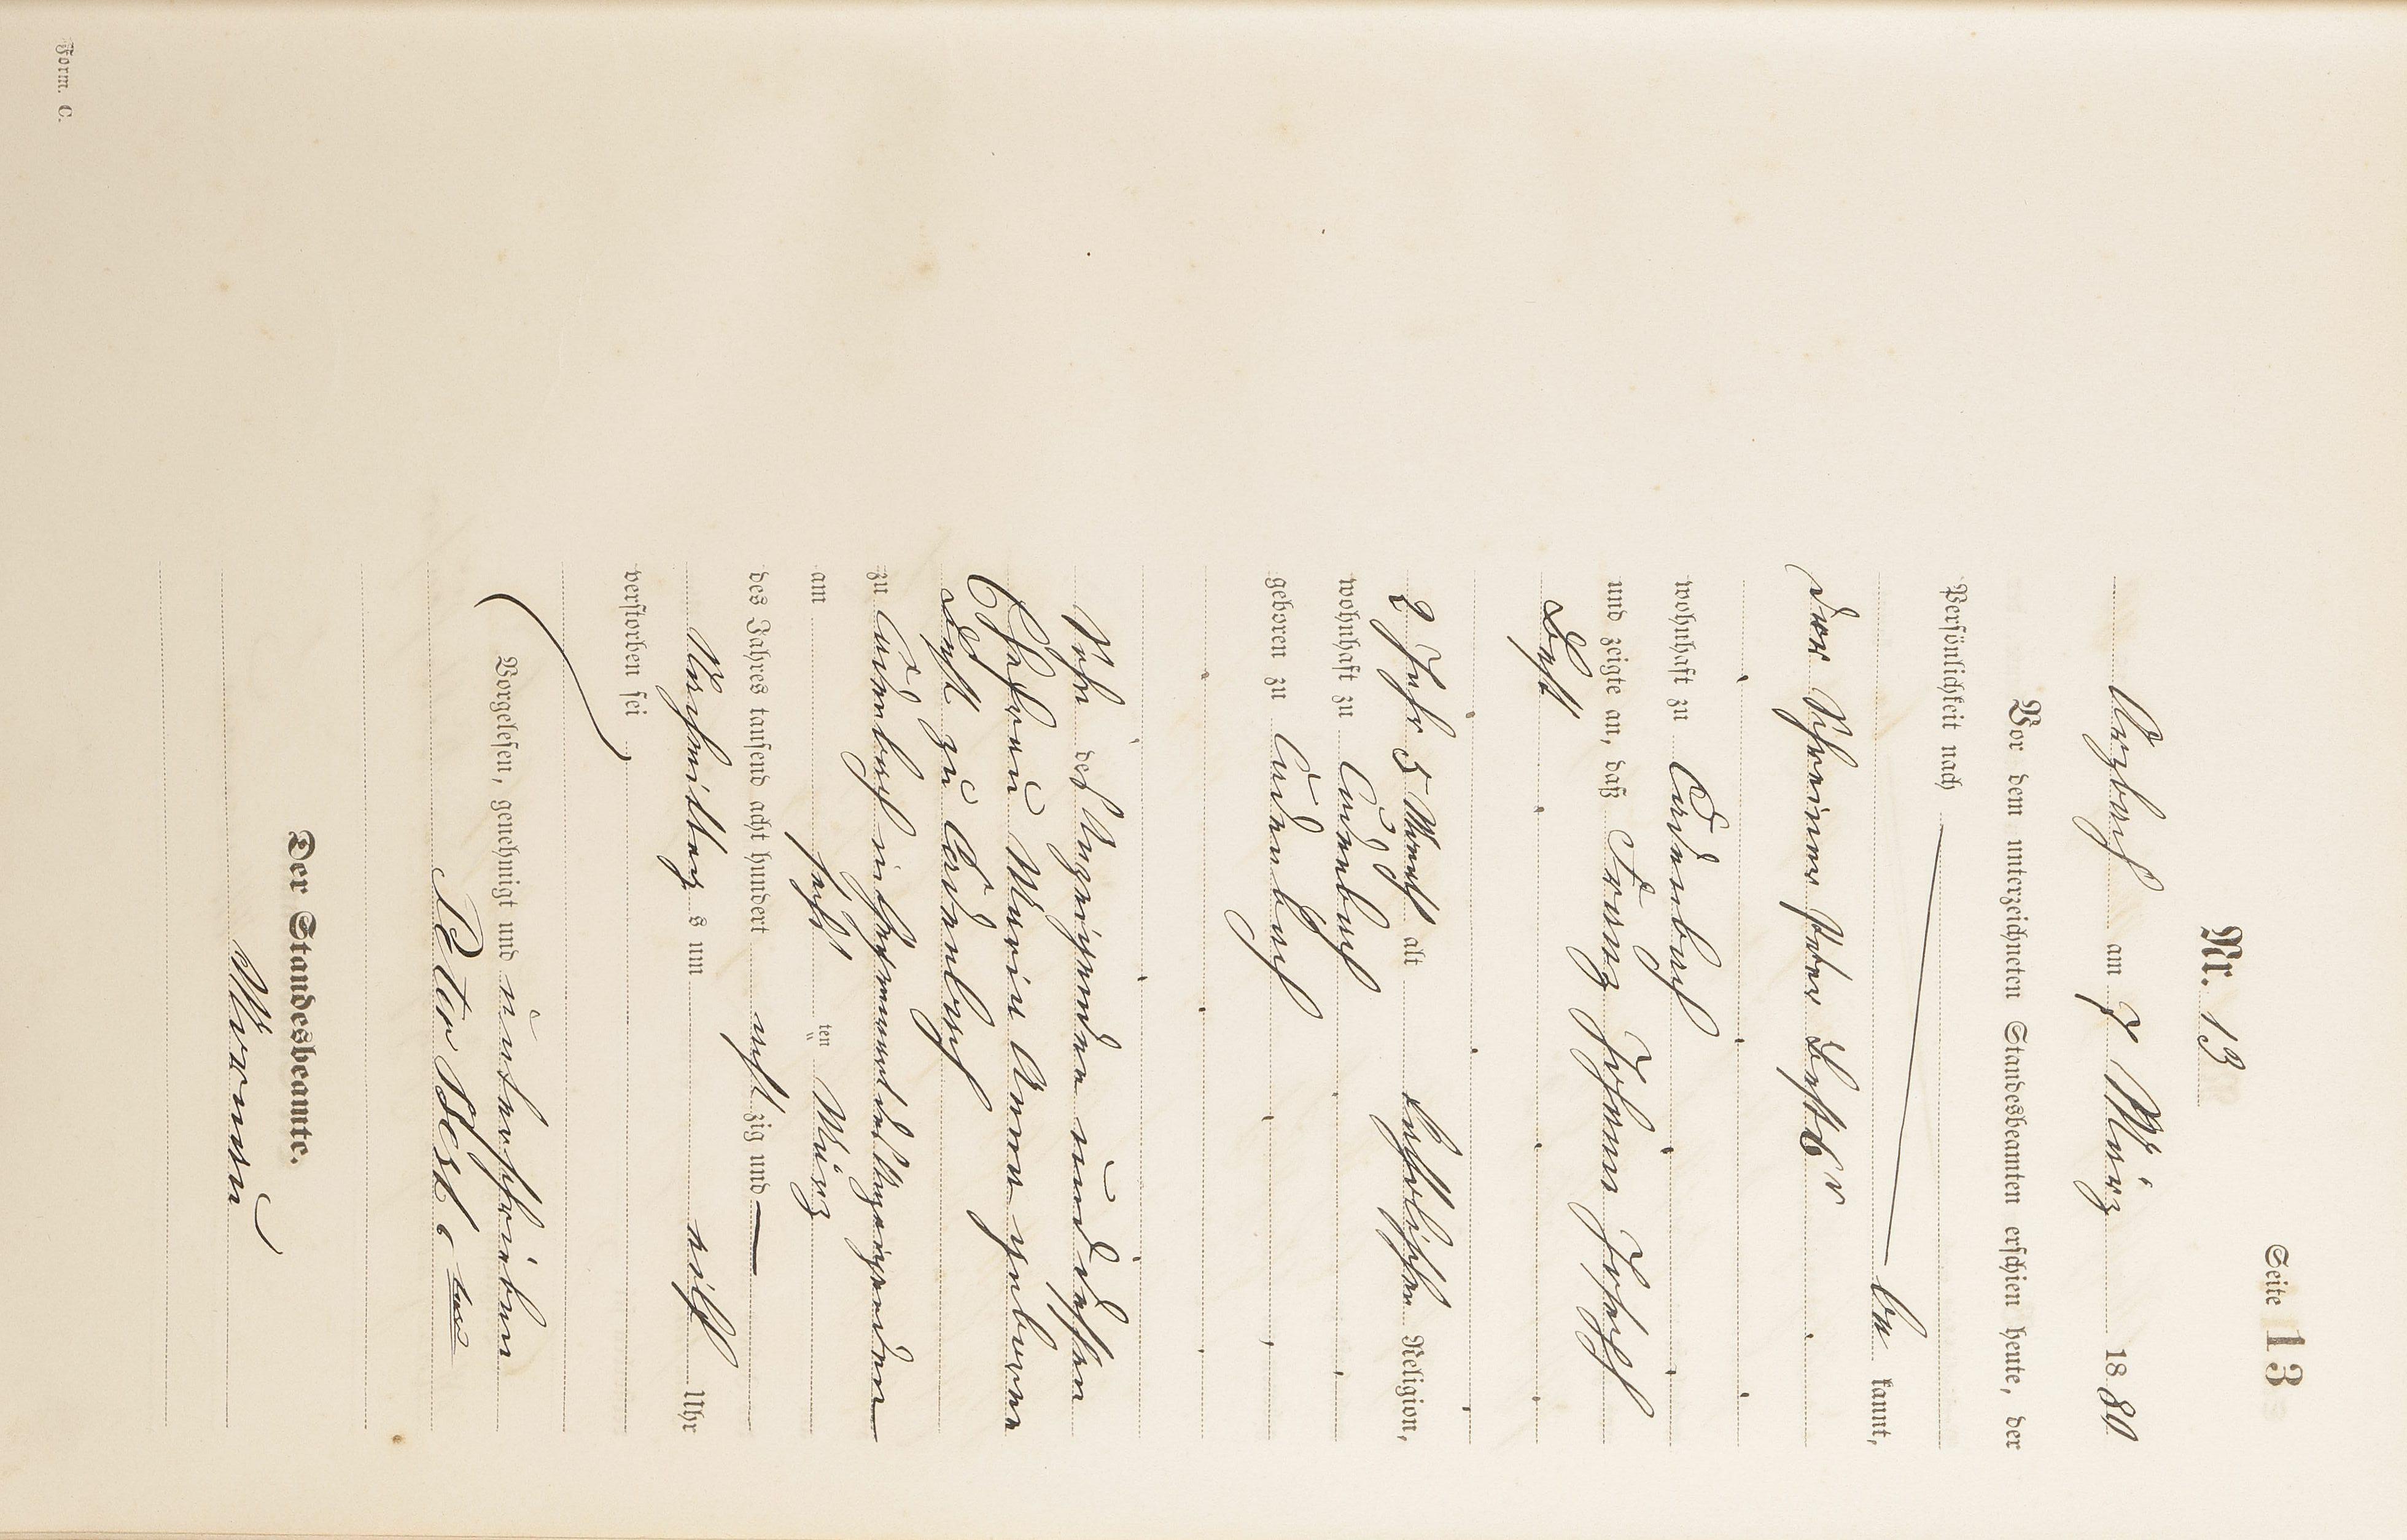 Seite 13
Nr. 13
Arzbach am 7 März 18 80
Vor dem unterzeichneten Standesbeamten erschien heute, der
Persönlichkeit nach
be kannt,
der Schreiner Peter Best 6r
wohnhaft zu Cadenbach
und zeigte an, daß Franz Johann Joseph
Best
2 Jahr 5 Monat alt katholischer Religion,
wohnhaft zu Cadenbach
geboren zu Cadenbach
Sohn des Anzeigenden und dessen
Ehefrau Maria Anna geborene
Best zu Cadenbach
zu Cadenbach in Gegenwart des Anzeigenden
am sechsten März
des Jahres tausend acht hundert acht zig und
Vormittag s um acht Uhr
verstorben sei
Vorgelesen, genehmigt und unterschrieben
Peter Best 6
Der Standesbeamte.
Form. C.